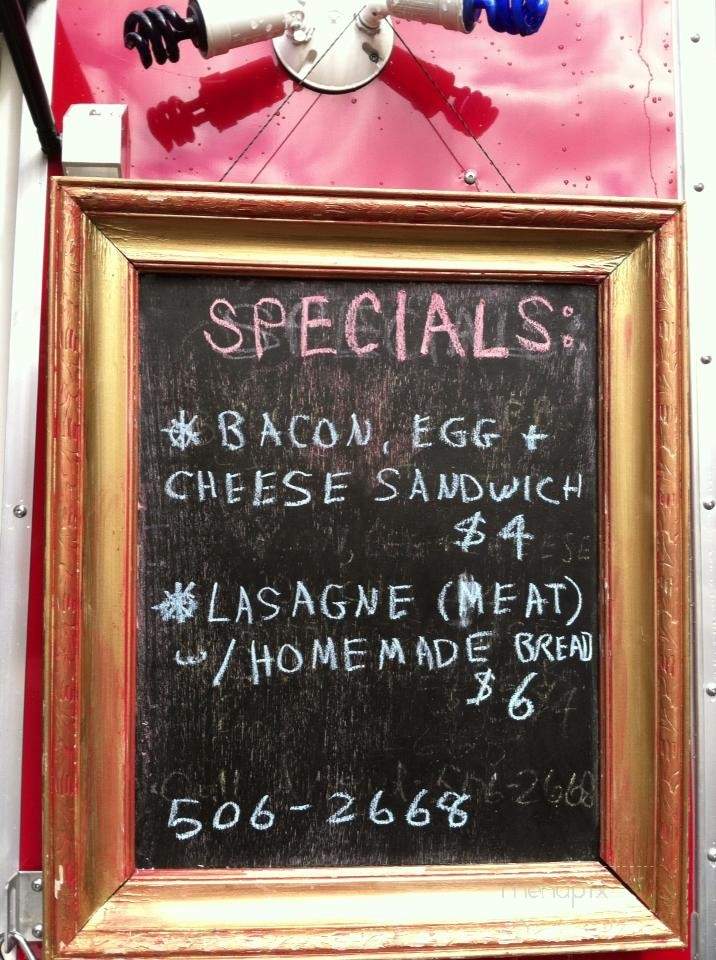 SPECIALS:
* BACON, EGG +
CHEESE SANDWICH
$4
* LASAGNE (MEAT)
w/HOMEMADE BREAD
$6
506-2668
menupix